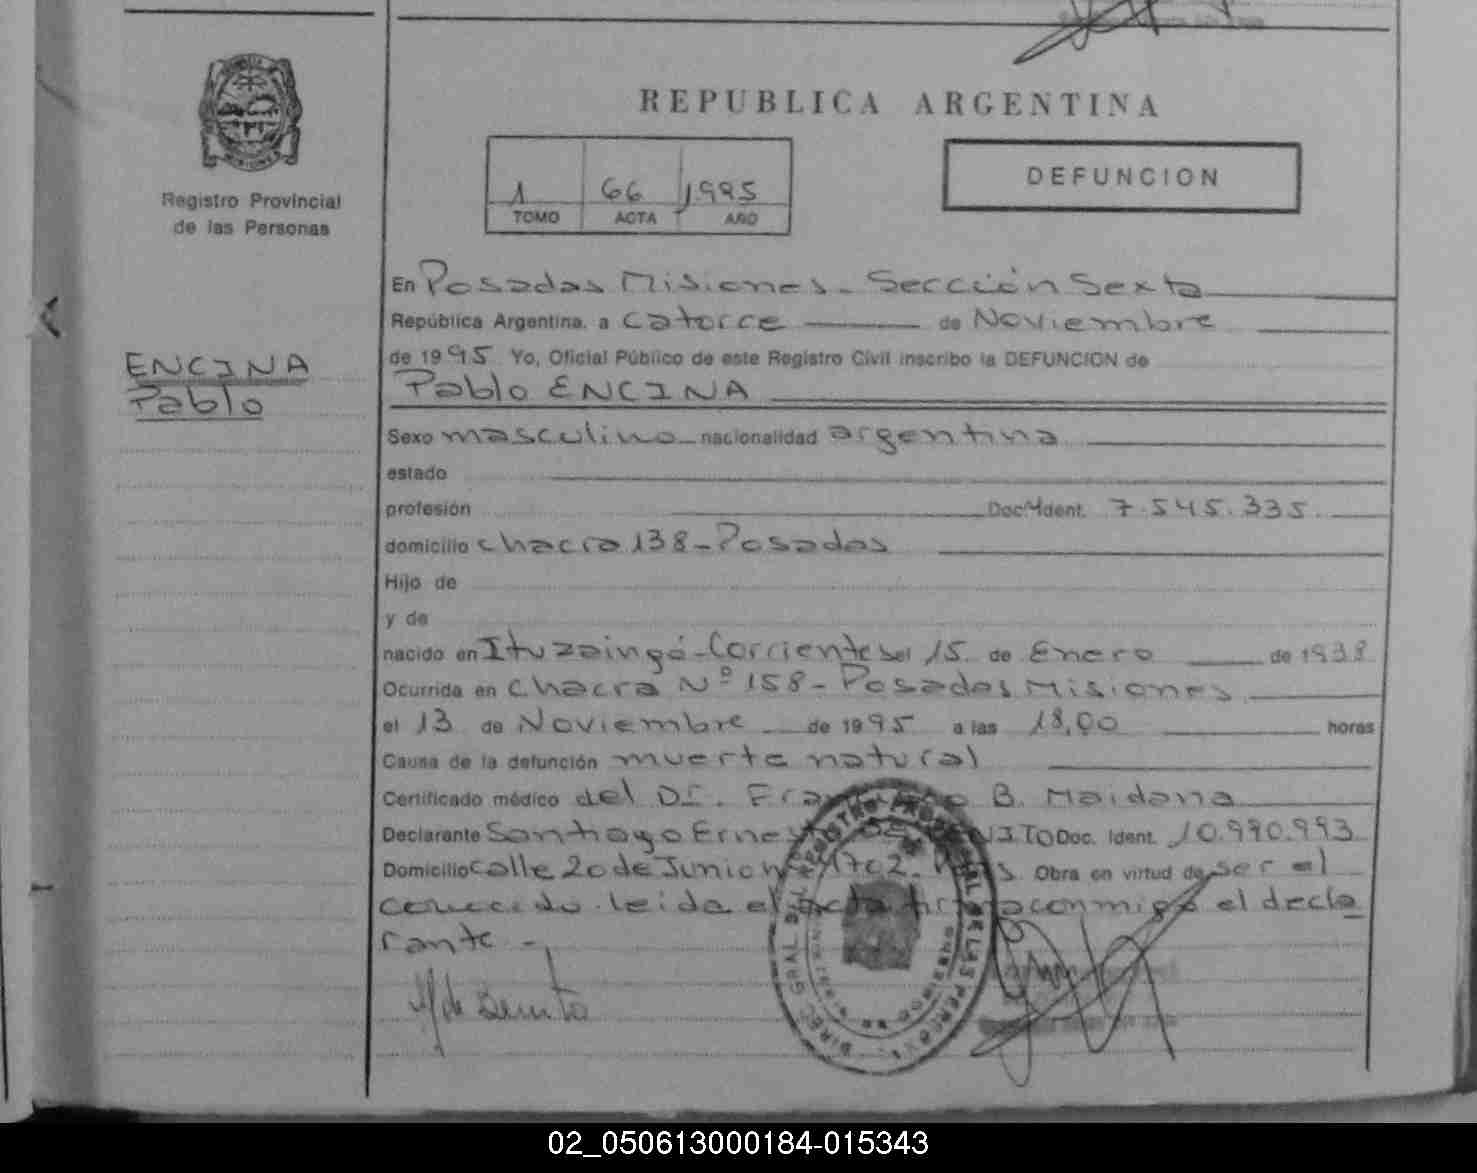 REPUBLICA ARGENTINA
Registro Provincial
de las Personas
1 66 1995
TOMO ACTA AÑO
DEFUNCION
ENCINA
Pablo
En Posadas Misiones - Sección Sexta
República Argentina, a catorce de Noviembre
de 1995 Yo, Oficial Público de este Registro Civil inscribo la DEFUNCION de
Pablo ENCINA
Sexo masculino nacionalidad argentina
estado
profesión Doc. Ident. 7.545.335.
domicilio chacra 138 - Posadas
Hijo de
y de
nacido en Ituzaingó - Corrientes el 15 de Enero de 1938
Ocurrida en chacra Nº 158 - Posadas Misiones
el 13 de Noviembre de 1995 a las 18,00 horas
Causa de la defunción muerte natural
Certificado médico del Dr. B. Maidana
Declarante Santiago Ernesto DE BENITO Doc. Ident. 10.990.993
Domicilio calle 20 de Junio nº 1702 Obra en virtud de ser el
conocido. leida el acta firma conmigo el decla
rante -
de Benito
02_050613000184-015343